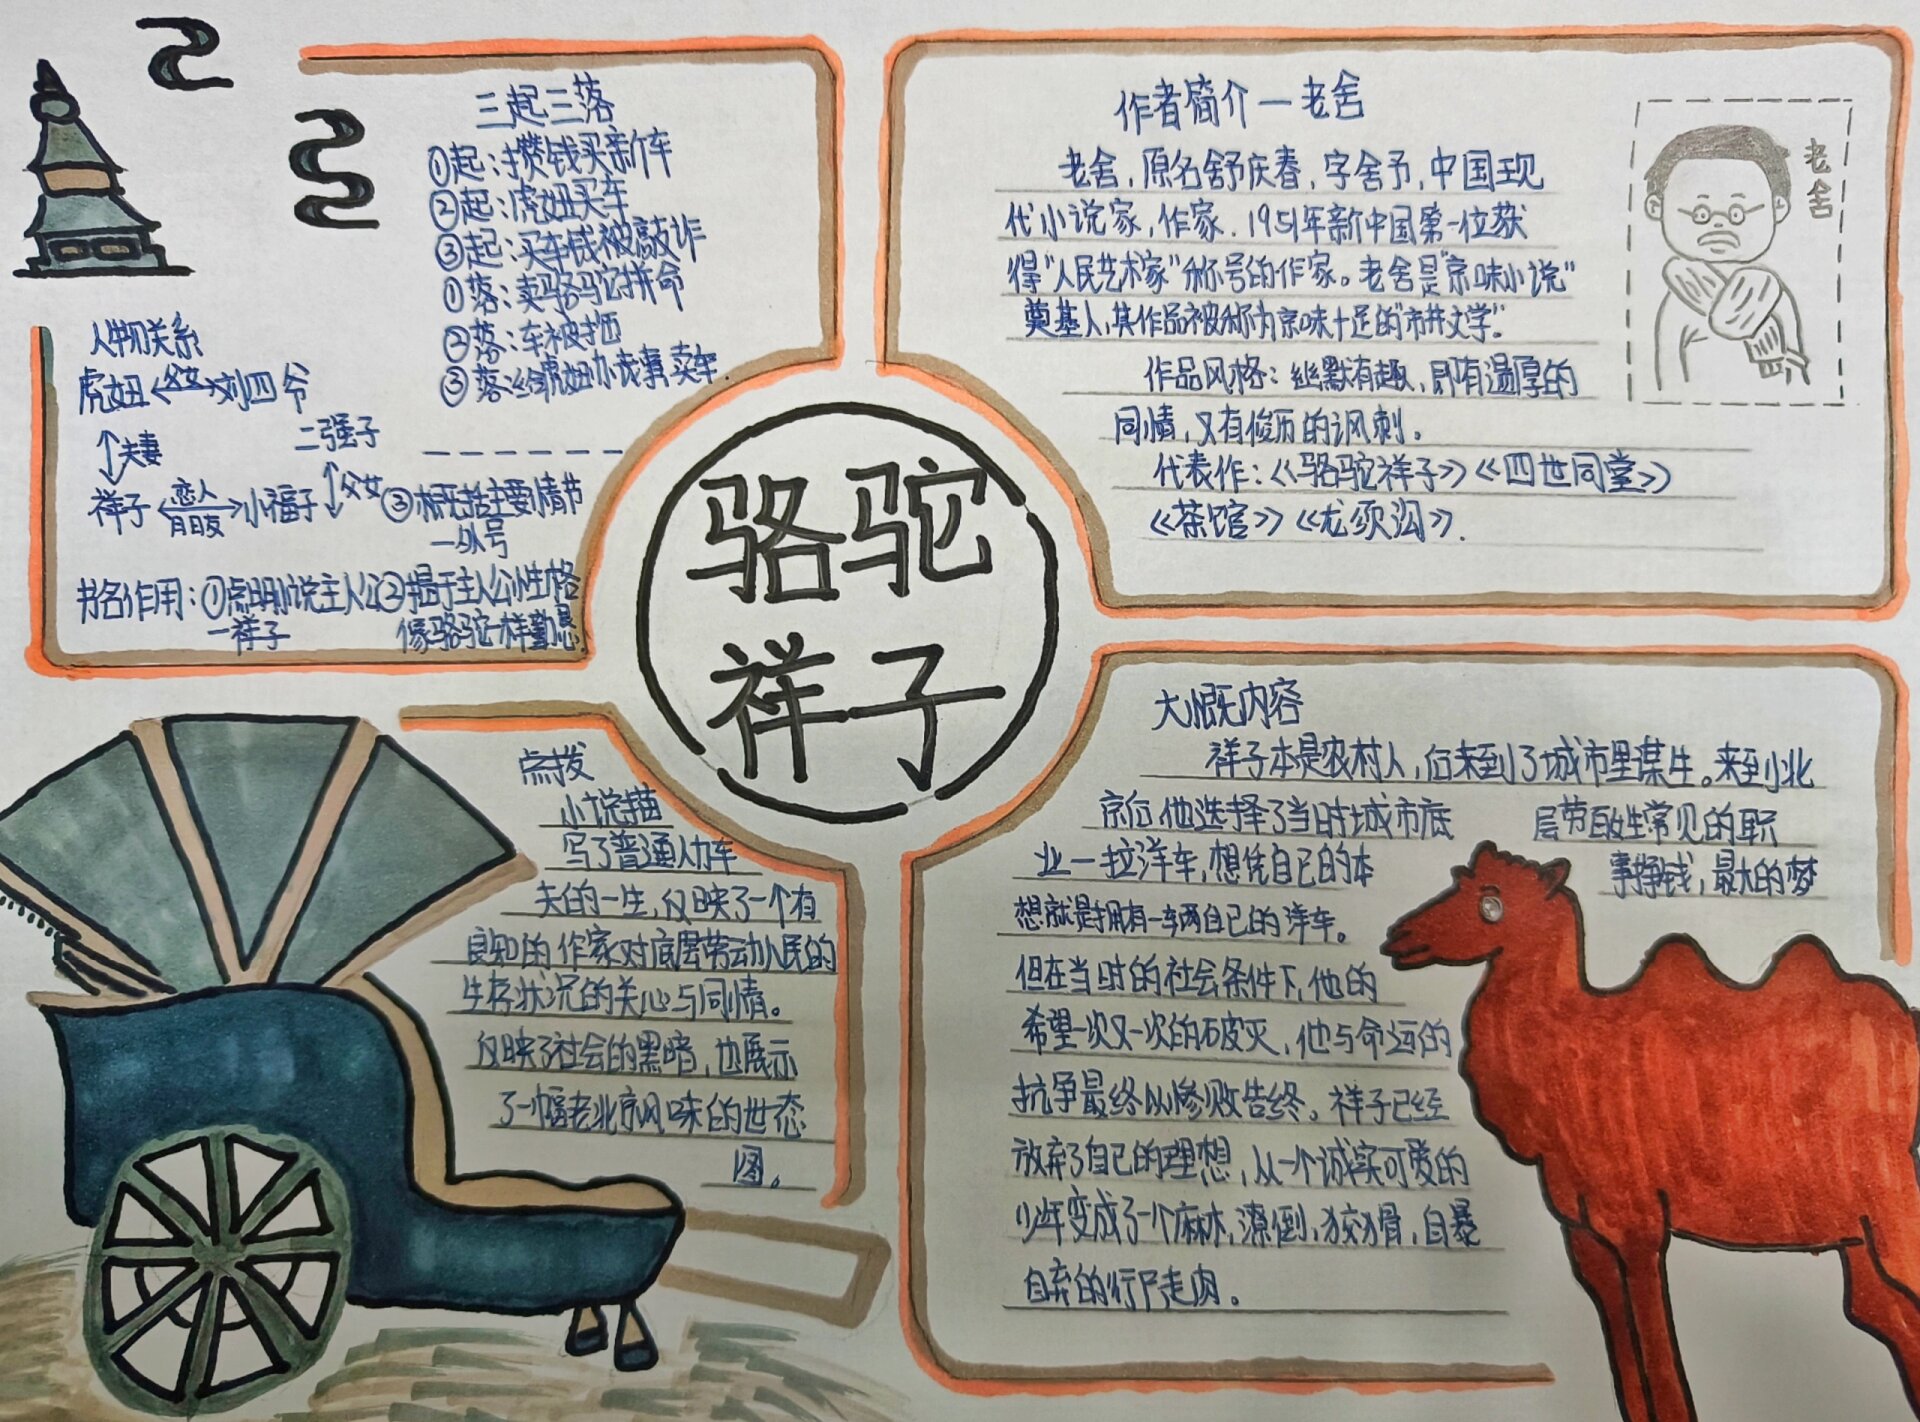 三起三落
①起：攒钱买新车
②起：虎妞买车
③起：买车钱被敲诈
①落：卖骆驼拼命
②落：车被
③落：给虎妞办丧事卖车.
人物关系
虎妞 父女 刘四爷
夫妻
二强子
父女
祥子 恋人 朋友 小福子
书名作用：①点明小说主人公
一祥子
②揭于主人公性格
像骆驼一样勤恳.
③概括主要情节
一外号
作者简介一老舍
老舍，原名舒庆春，字舍予，中国现
代小说家，作家.1951年新中国第一位获
得"人民艺术家"称号的作家。老舍是"京味小说"
奠基人，其作品被称为京味十足的"市井文学".
作品风格：幽默有趣，即有温厚的
同情，又有俊历的讽刺。
代表作：《骆驼祥子》《四世同堂》
《茶馆》《龙须沟》.
老舍
骆驼
祥子
点拨
小说描
写了普通人力车
夫的一生，反映了一个有
良知的作家对底层劳动人民的
生存状况的关心与同情。
反映了社会的黑暗，也展示
了一幅老北京风味的世态
图。
大慨内容
祥子本是农村人，后来到了城市里谋生。来到小北
京后他选择了当时城市底 层劳动生常见的职
业一拉洋车，想凭自己的本 事挣钱，最大的梦
想就是拥有一车两自己的洋车。
但在当时的社会条件下，他的
希望一次又一次的破灭，他与命运的
抗争最终以惨败告终。祥子已经
放弃了自己的理想，从一个诚实可爱的
少年变成了一个麻木，潦倒，狡猾，自暴
自弃的行尸走肉。